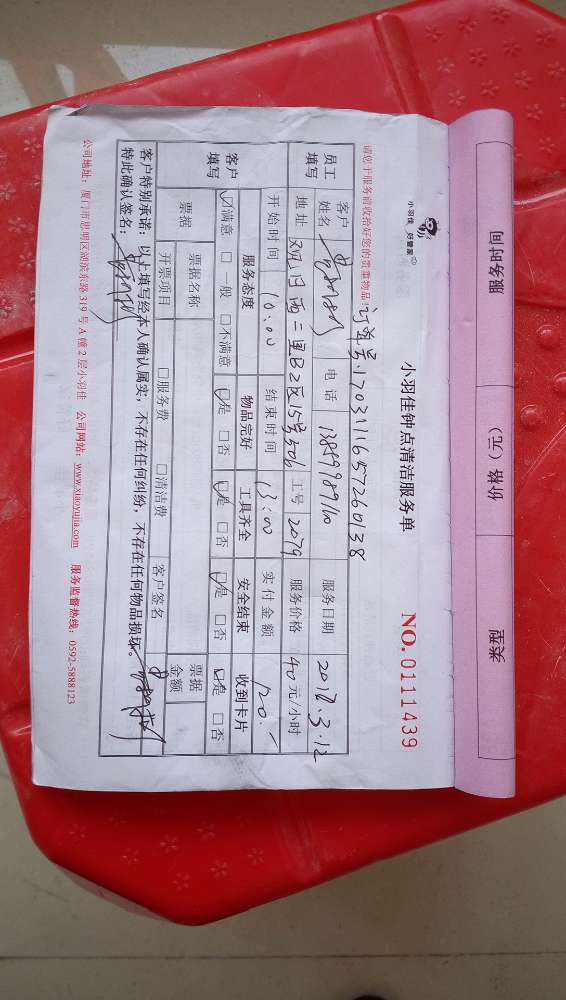 服务时间 价格（元） 类型
小羽佳 好管家
小羽佳钟点清洁服务单
NO. 0111439
请您于服务前收拾好您的贵重物品！
订单号:1703111657260138
员工填写
客户姓名 电话 服务日期 2017.3.12
地址 西二里B2区15号506 工号 2079 服务价格 40元/小时
开始时间 10:00 结束时间 13:00 实付金额 120.-
客户填写
服务态度 物品完好 工具齐全 安全结束 收到卡片
☑满意 □一般 □不满意 ☑是 □否 ☑是 □否 ☑是 □否 ☑是 □否
票据 票据名称 票据金额
开票项目 □服务费 □清洁费 客户签名
客户特别承诺：以上填写经本人确认属实，不存在任何纠纷，不存在任何物品损坏。
特此确认签名：
公司地址：厦门市思明区湖滨东路319号A幢2层小羽佳 公司网站：www.xiaoyujia.com 服务监督热线：0592-5888123